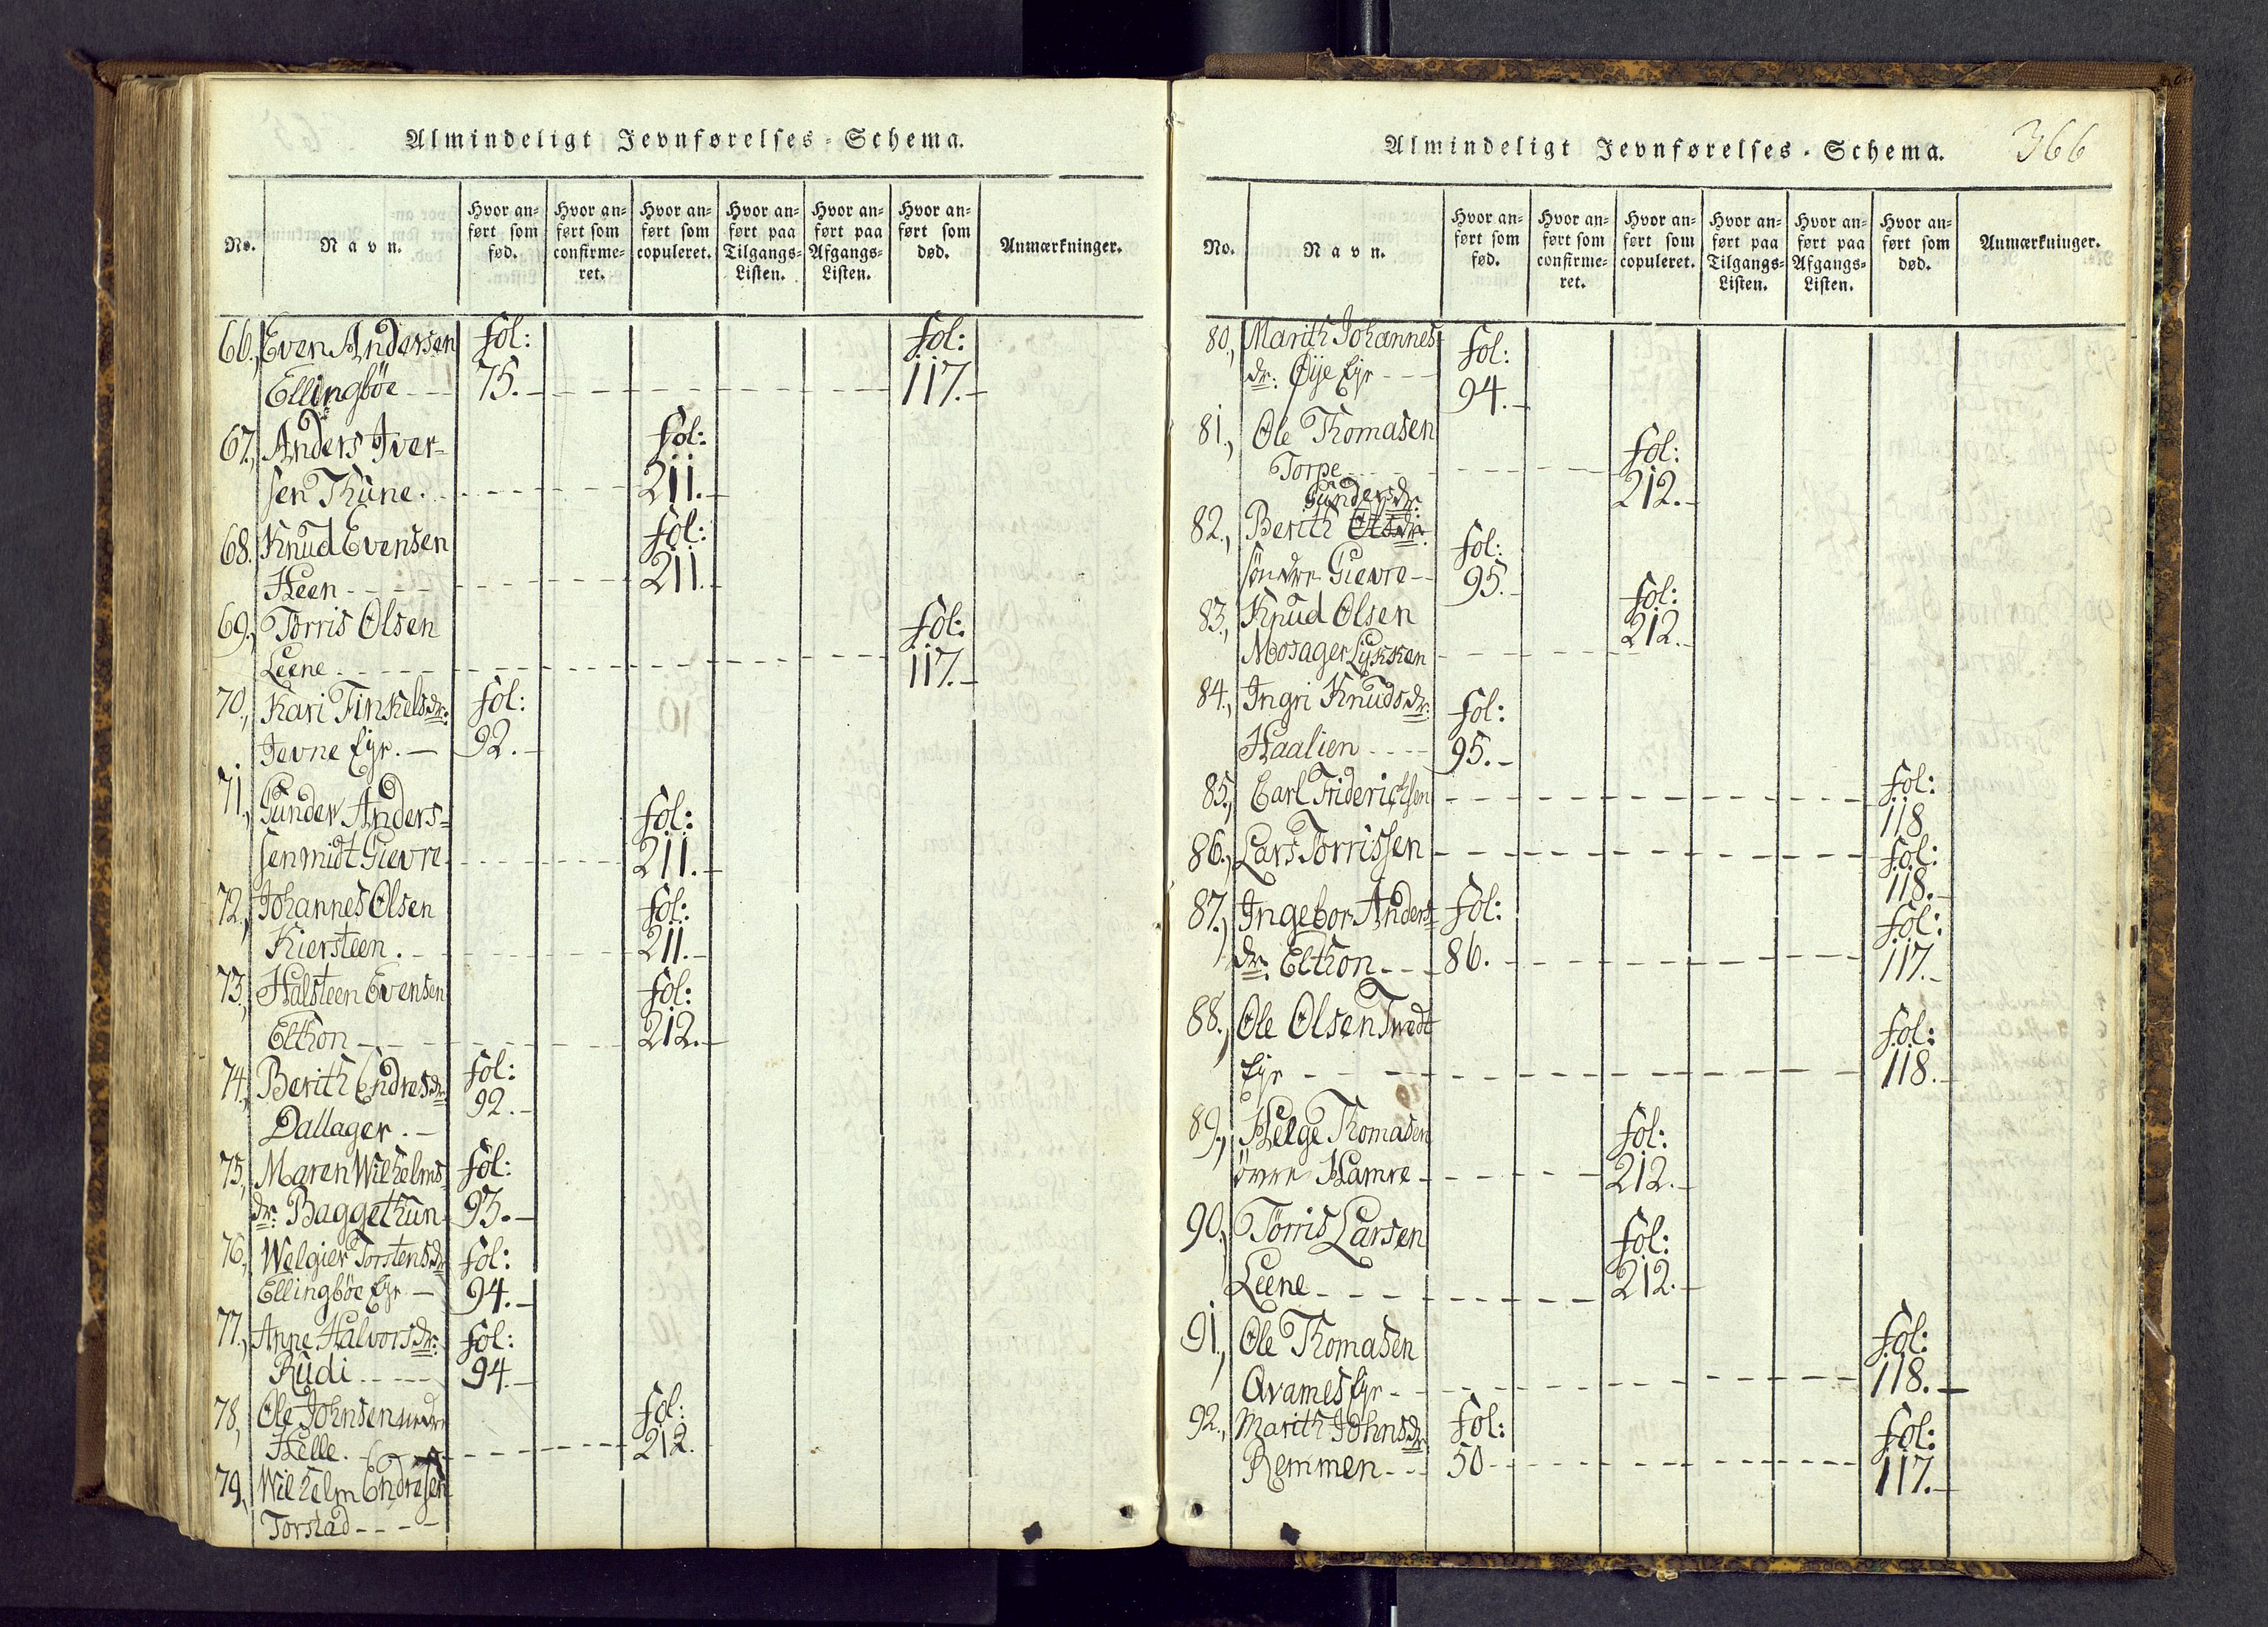 Almindeligt Jevnførelses-Schema.
No. Navn. Hvor anført som fød. Hvor anført som confirmeret. Hvor anført som copuleret. Hvor anført paa Tilgangs-Listen. Hvor anført paa Afgangs-Listen. Hvor anført som død. Anmærkninger.
66., Even Andersen fol: fol:
Ellingböe 75. 117.
67., Anders Iver- fol:
sen Thune. 211.
68. Knud Evensen fol:
Heen 211.
69., Torris Olsen fol:
Leene 117.
70., Kari Finkelsdr: fol:
Jevne Eyr. 92.
71., Gunder Anders- fol:
sen midt Gievre 211.
72., Johannes Olsen fol:
Kiersteen. 211.
73., Halsteen Evensen fol:
Elthon 212.
74., Berith Endresdr: fol:
Dallager. 92.
75., Maren Wilhelms- fol:
dr: Baggethun 93.
76., Welgier Torstensdr fol:
Ellingböe Eyr 94.
77., Anne Halvorsdr: fol:
Rudi 94.
78, Ole Johnsen nedre fol:
Helle. 212.
79., Wilhelm Endresen
Torstad
Almindeligt Jevnførelses-Schema. 366
No. Navn. Hvor anført som fød. Hvor anført som confirmeret. Hvor anført som copuleret. Hvor anført paa Tilgangs-Listen. Hvor anført paa Afgangs-Listen. Hvor anført som død. Anmærkninger.
80., Marith Johannes- fol:
dr: Øye Eyr 94.
81., Ole Thomasen fol:
Torpe 212.
Gundersdr:
82., Berith Olsdr: fol:
söndre Gievre 95.
83., Knud Olsen fol:
Mosager Lykken 212.
84., Ingri Knudsdr: fol:
Haalien 95.
85., Carl Friderichsen fol:
118
86., Lars Torrissen fol:
118.
87., Ingebor Anders- fol: fol:
dr: Elthon 86. 117.
88., Ole Olsen Twedt fol:
Eyr 118.
89., Helge Thomasen fol:
övre Hamre 212.
90., Torris Larsen fol:
Leene 212.
91., Ole Thomasen fol:
Qvames Eyr 118.
92., Marith Johnsdr: fol: fol:
Remmen 50 117.